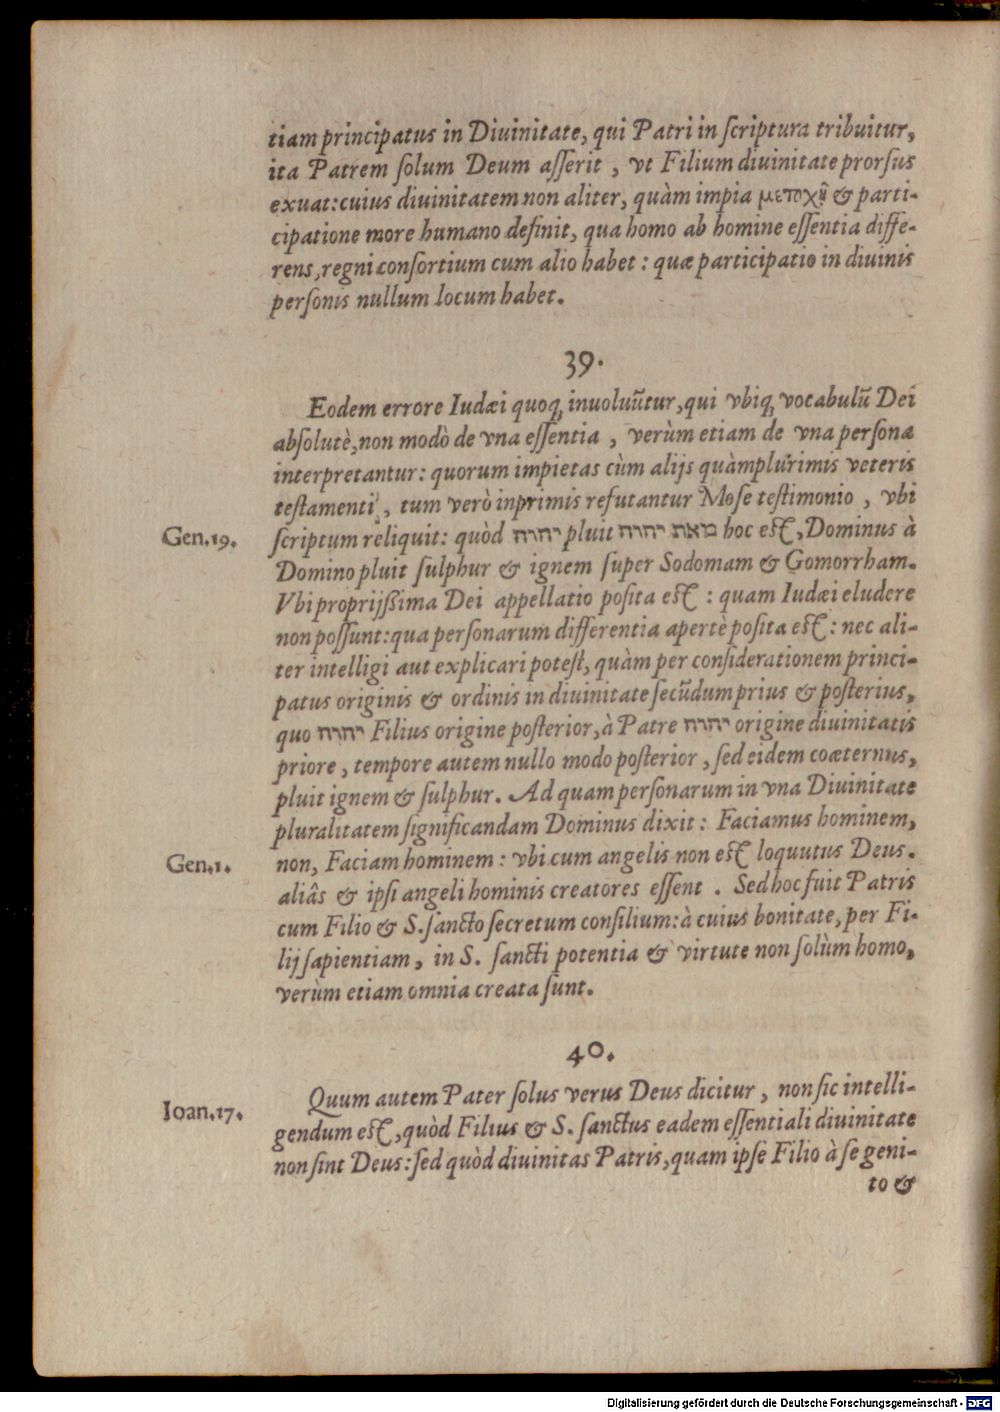 tiam principatus in Diuinitate, qui Patri in ſcriptura tribuitur,
ita Patrem ſolum Deum aſſerit, vt Filium diuinitate prorſus
exuat: cuius diuinitatem non aliter, quàm impia μετοχῇ & parti-
cipatione more humano definit, qua homo ab homine eſſentia diffe-
rens, regni conſortium cum alio habet: quæ participatio in diuinis
perſonis nullum locum habet.
39.
Eodem errore Iudæi quoq; inuoluũtur, qui vbiq; vocabulũ Dei
abſolutè, non modò de vna eſſentia, verùm etiam de vna perſona
interpretantur: quorum impietas cùm alijs quàmplurimis veteris
teſtamenti, tum verò inprimis refutantur Moſe teſtimonio, vbi
Gen. 19.
ſcriptum reliquit: quòd יהוה pluit מאת יהוה hoc eſt, Dominus à
Domino pluit ſulphur & ignem ſuper Sodomam & Gomorrham.
Vbi proprijßima Dei appellatio poſita eſt: quam Iudæi eludere
non poſſunt: qua perſonarum differentia apertè poſita eſt: nec ali-
ter intelligi aut explicari poteſt, quàm per conſiderationem princi-
patus originis & ordinis in diuinitate ſecũdum prius & poſterius,
quo יהוה Filius origine poſterior, à Patre יהוה origine diuinitatis
priore, tempore autem nullo modo poſterior, ſed eidem coæternus,
pluit ignem & ſulphur. Ad quam perſonarum in vna Diuinitate
pluralitatem ſignificandam Dominus dixit: Faciamus hominem,
Gen. 1.
non, Faciam hominem: vbi cum angelis non eſt loquutus Deus.
aliâs & ipſi angeli hominis creatores eſſent. Sed hoc fuit Patris
cum Filio & S. ſancto ſecretum conſilium: à cuius bonitate, per Fi-
lij ſapientiam, in S. ſancti potentia & virtute non ſolùm homo,
verùm etiam omnia creata ſunt.
40.
Ioan. 17.
Quum autem Pater ſolus verus Deus dicitur, non ſic intelli-
gendum eſt, quòd Filius & S. ſanctus eadem eſſentiali diuinitate
non ſint Deus: ſed quòd diuinitas Patris, quam ipſe Filio à ſe geni-
to &
Digitalisierung gefördert durch die Deutsche Forschungsgemeinschaft - DFG